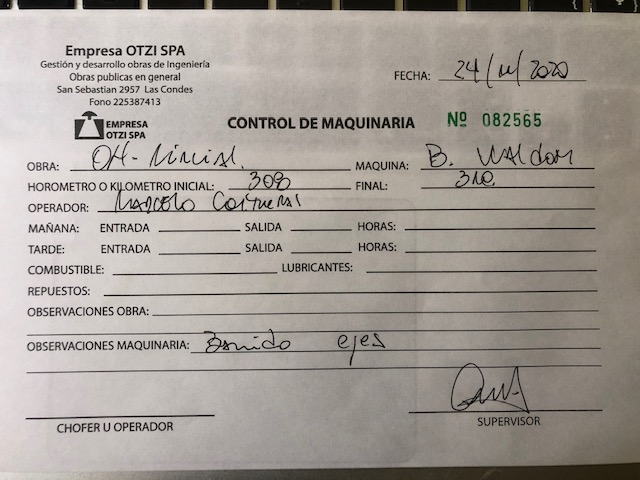 Empresa OTZI SPA
Gestión y desarrollo obras de Ingeniería
Obras publicas en general
San Sebastian 2957 Las Condes
Fono 225387413
FECHA: 24/11/2020
EMPRESA
OTZI SPA
CONTROL DE MAQUINARIA
Nº 082565
OBRA: MAQUINA: B.
HOROMETRO O KILOMETRO INICIAL: 300 FINAL: 310
OPERADOR:
MAÑANA: ENTRADA SALIDA HORAS:
TARDE: ENTRADA SALIDA HORAS:
COMBUSTIBLE: LUBRICANTES:
REPUESTOS:
OBSERVACIONES OBRA:
OBSERVACIONES MAQUINARIA: ejes
CHOFER U OPERADOR SUPERVISOR